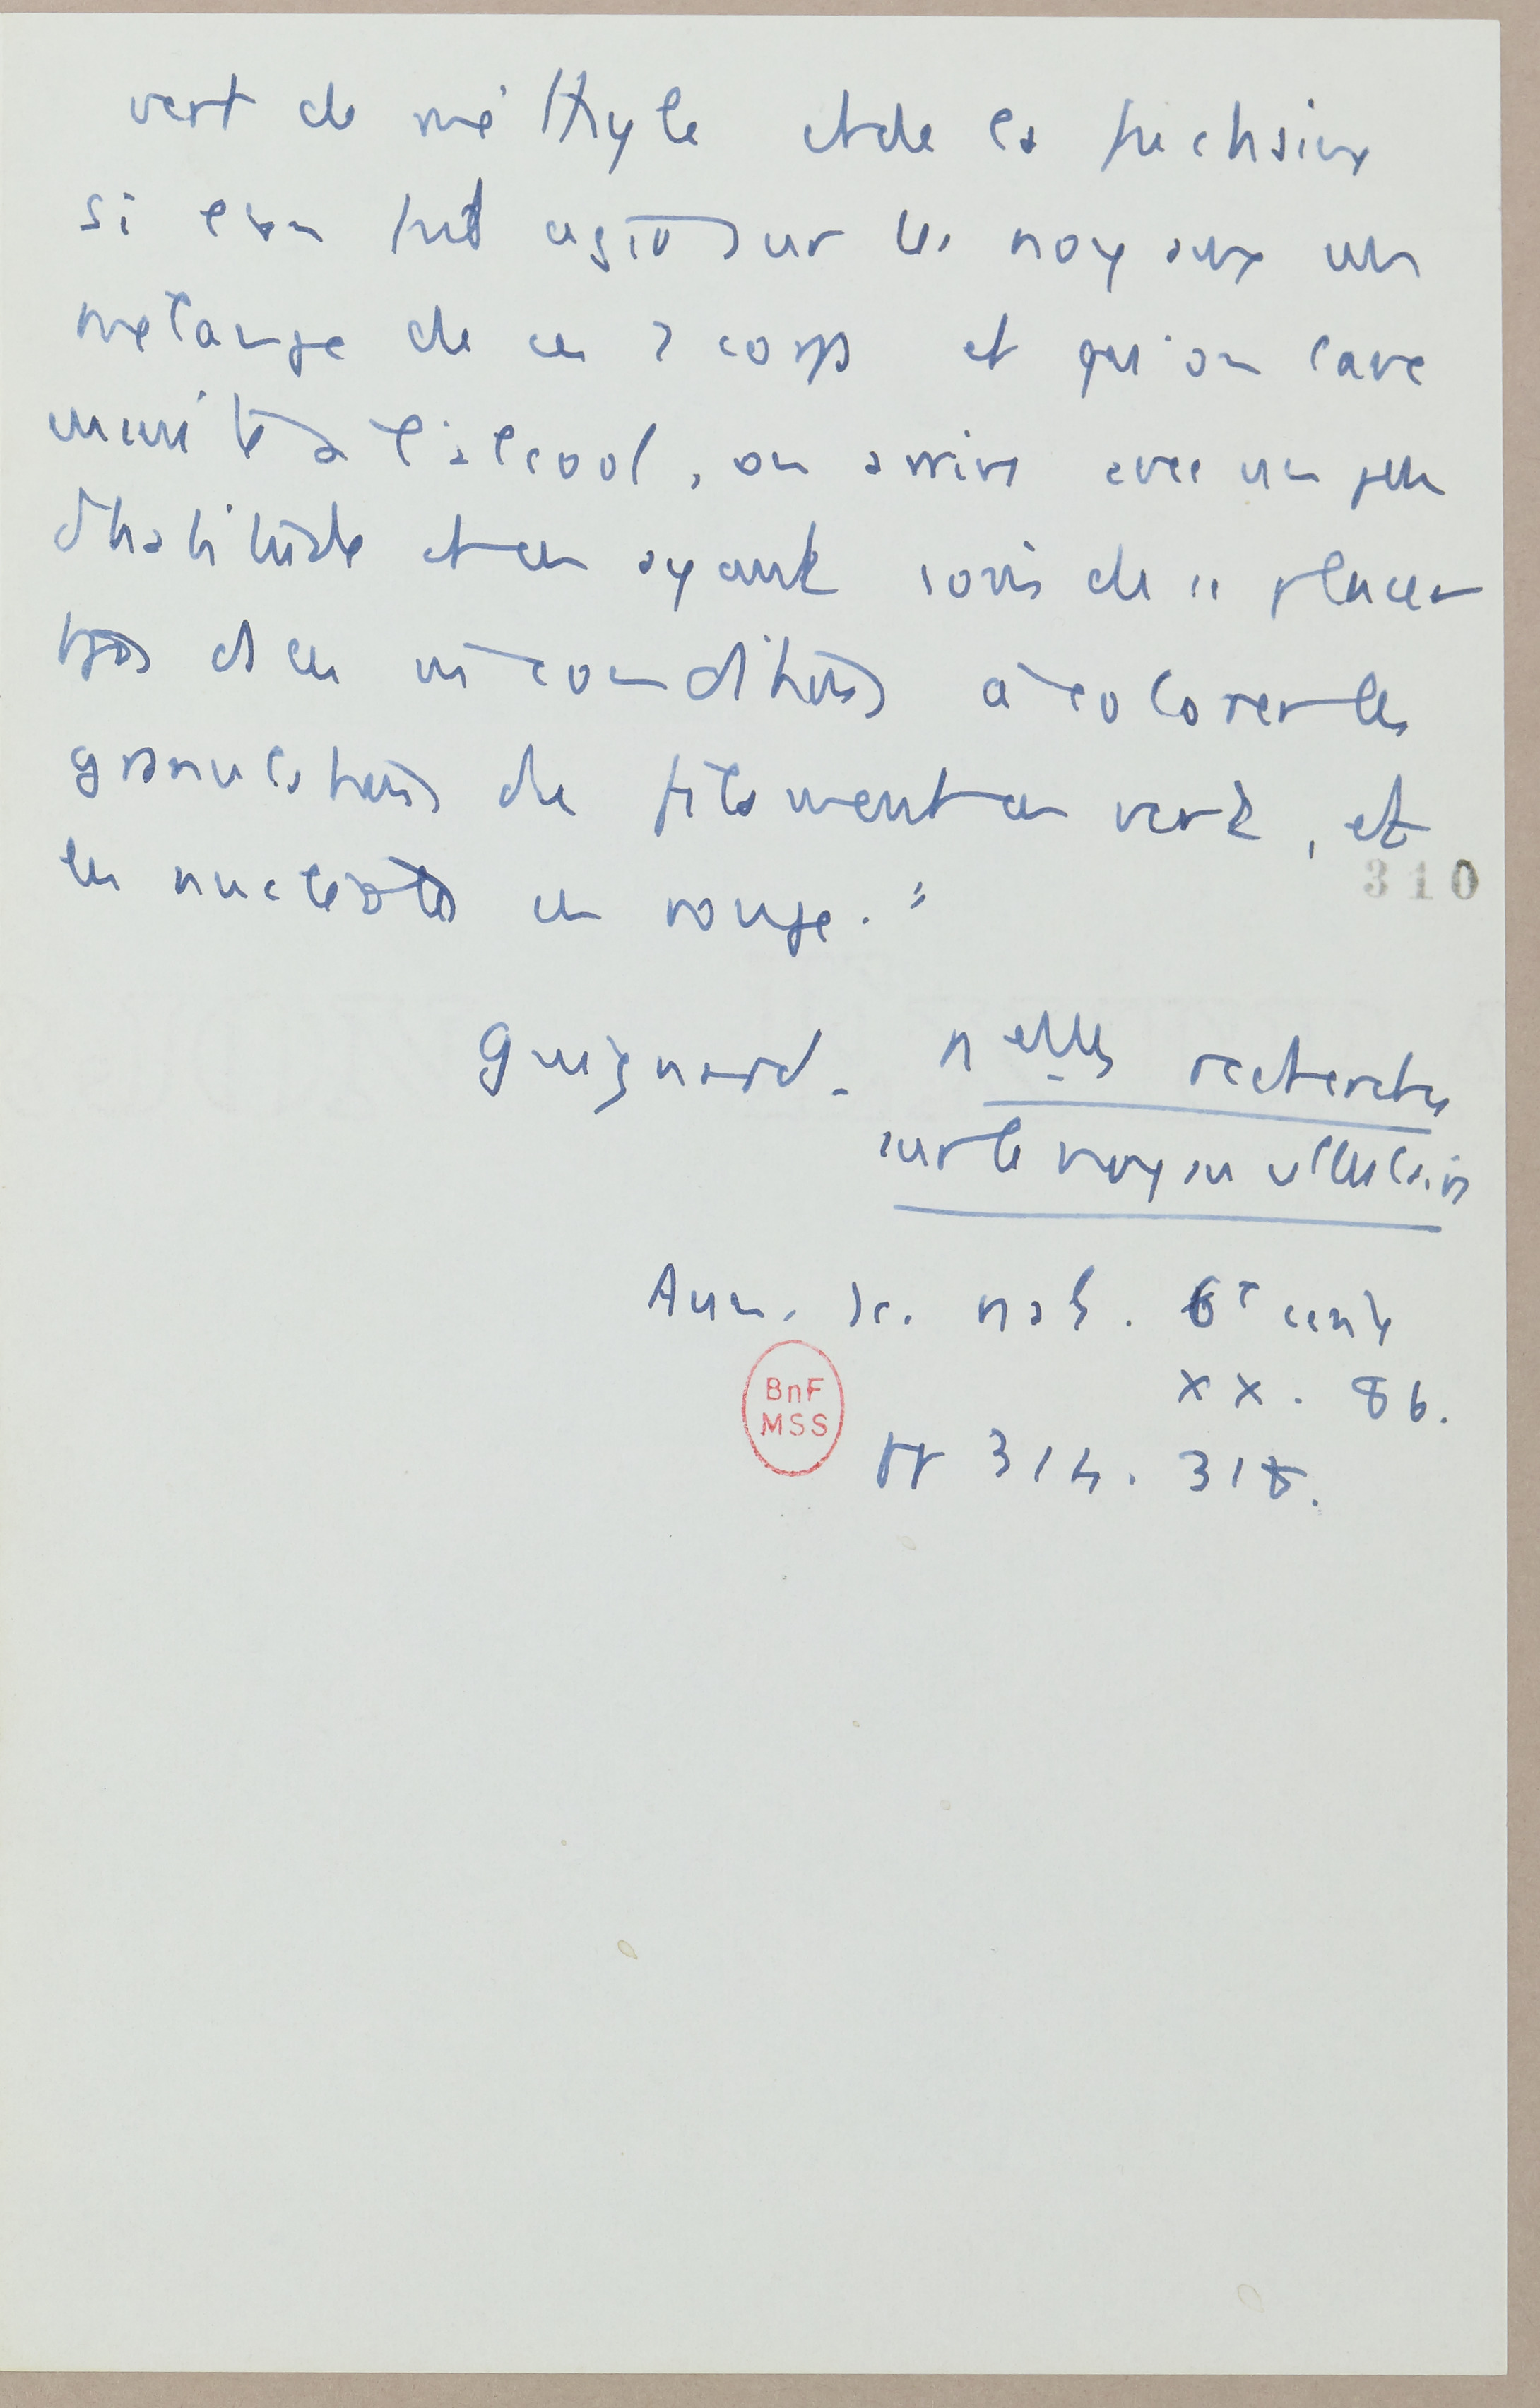 vert de méthyle et de la fuchsine
si l'on fait agir sur les noyaux un
mélange de ces 2 corps et qu'on lave
ensuite à l'alcool, on arrive avec un peu
d'habitude et en ayant soin de se placer
dans conditions à colorer les
granulations de filament en vert, et
les nucléoles en rouge."
310
Guignard. nelles recherches
sur le noyau cellulaire
Ann. Sc. nat. 6e série
XX. 86.
BnF
MSS
pp 314. 318.